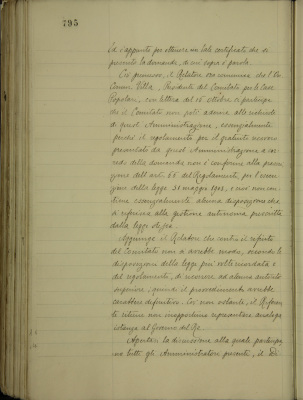 795
la s'appunto per ottenere un tale certificato che si
presentò la domanda, di cui sopra è parola.
Ciò premesso, il Relatore comunica che l'On.
Comm. Villa, Presidente del Comitato per le Case
Popolari, con lettera del 15 Ottobre
che il Comitato non poté aderire alla richiesta
di quest'Amministrazione, essenzialmente
perché il regolamento per il
presentato da quest'Amministrazione a cor
redo della domanda non è conforme alla prescri
zione dell'art. 66 del Regolamento per l'esecu
zione della legge 31 maggio 1903, e cioè non con
tiene essenzialmente alcuna disposizione che
si riferisca alla gestione autonoma prescritta
dalla legge stessa.
Aggiunge il Relatore che contro il rifiuto
del Comitato non si avrebbe modo, secondo le
disposizioni della legge più volte ricordata e
del regolamento, di ricorrere ad alcuna autorità
superiore, quindi il provvedimento avrebbe
carattere definitivo. Ciò non ostante, il Riferen
te ritiene non inopportuno ripresentare analoga
istanza al Governo del Re.
Aperta la discussione alla quale partecipa
no tutti gli Amministratori presenti, il